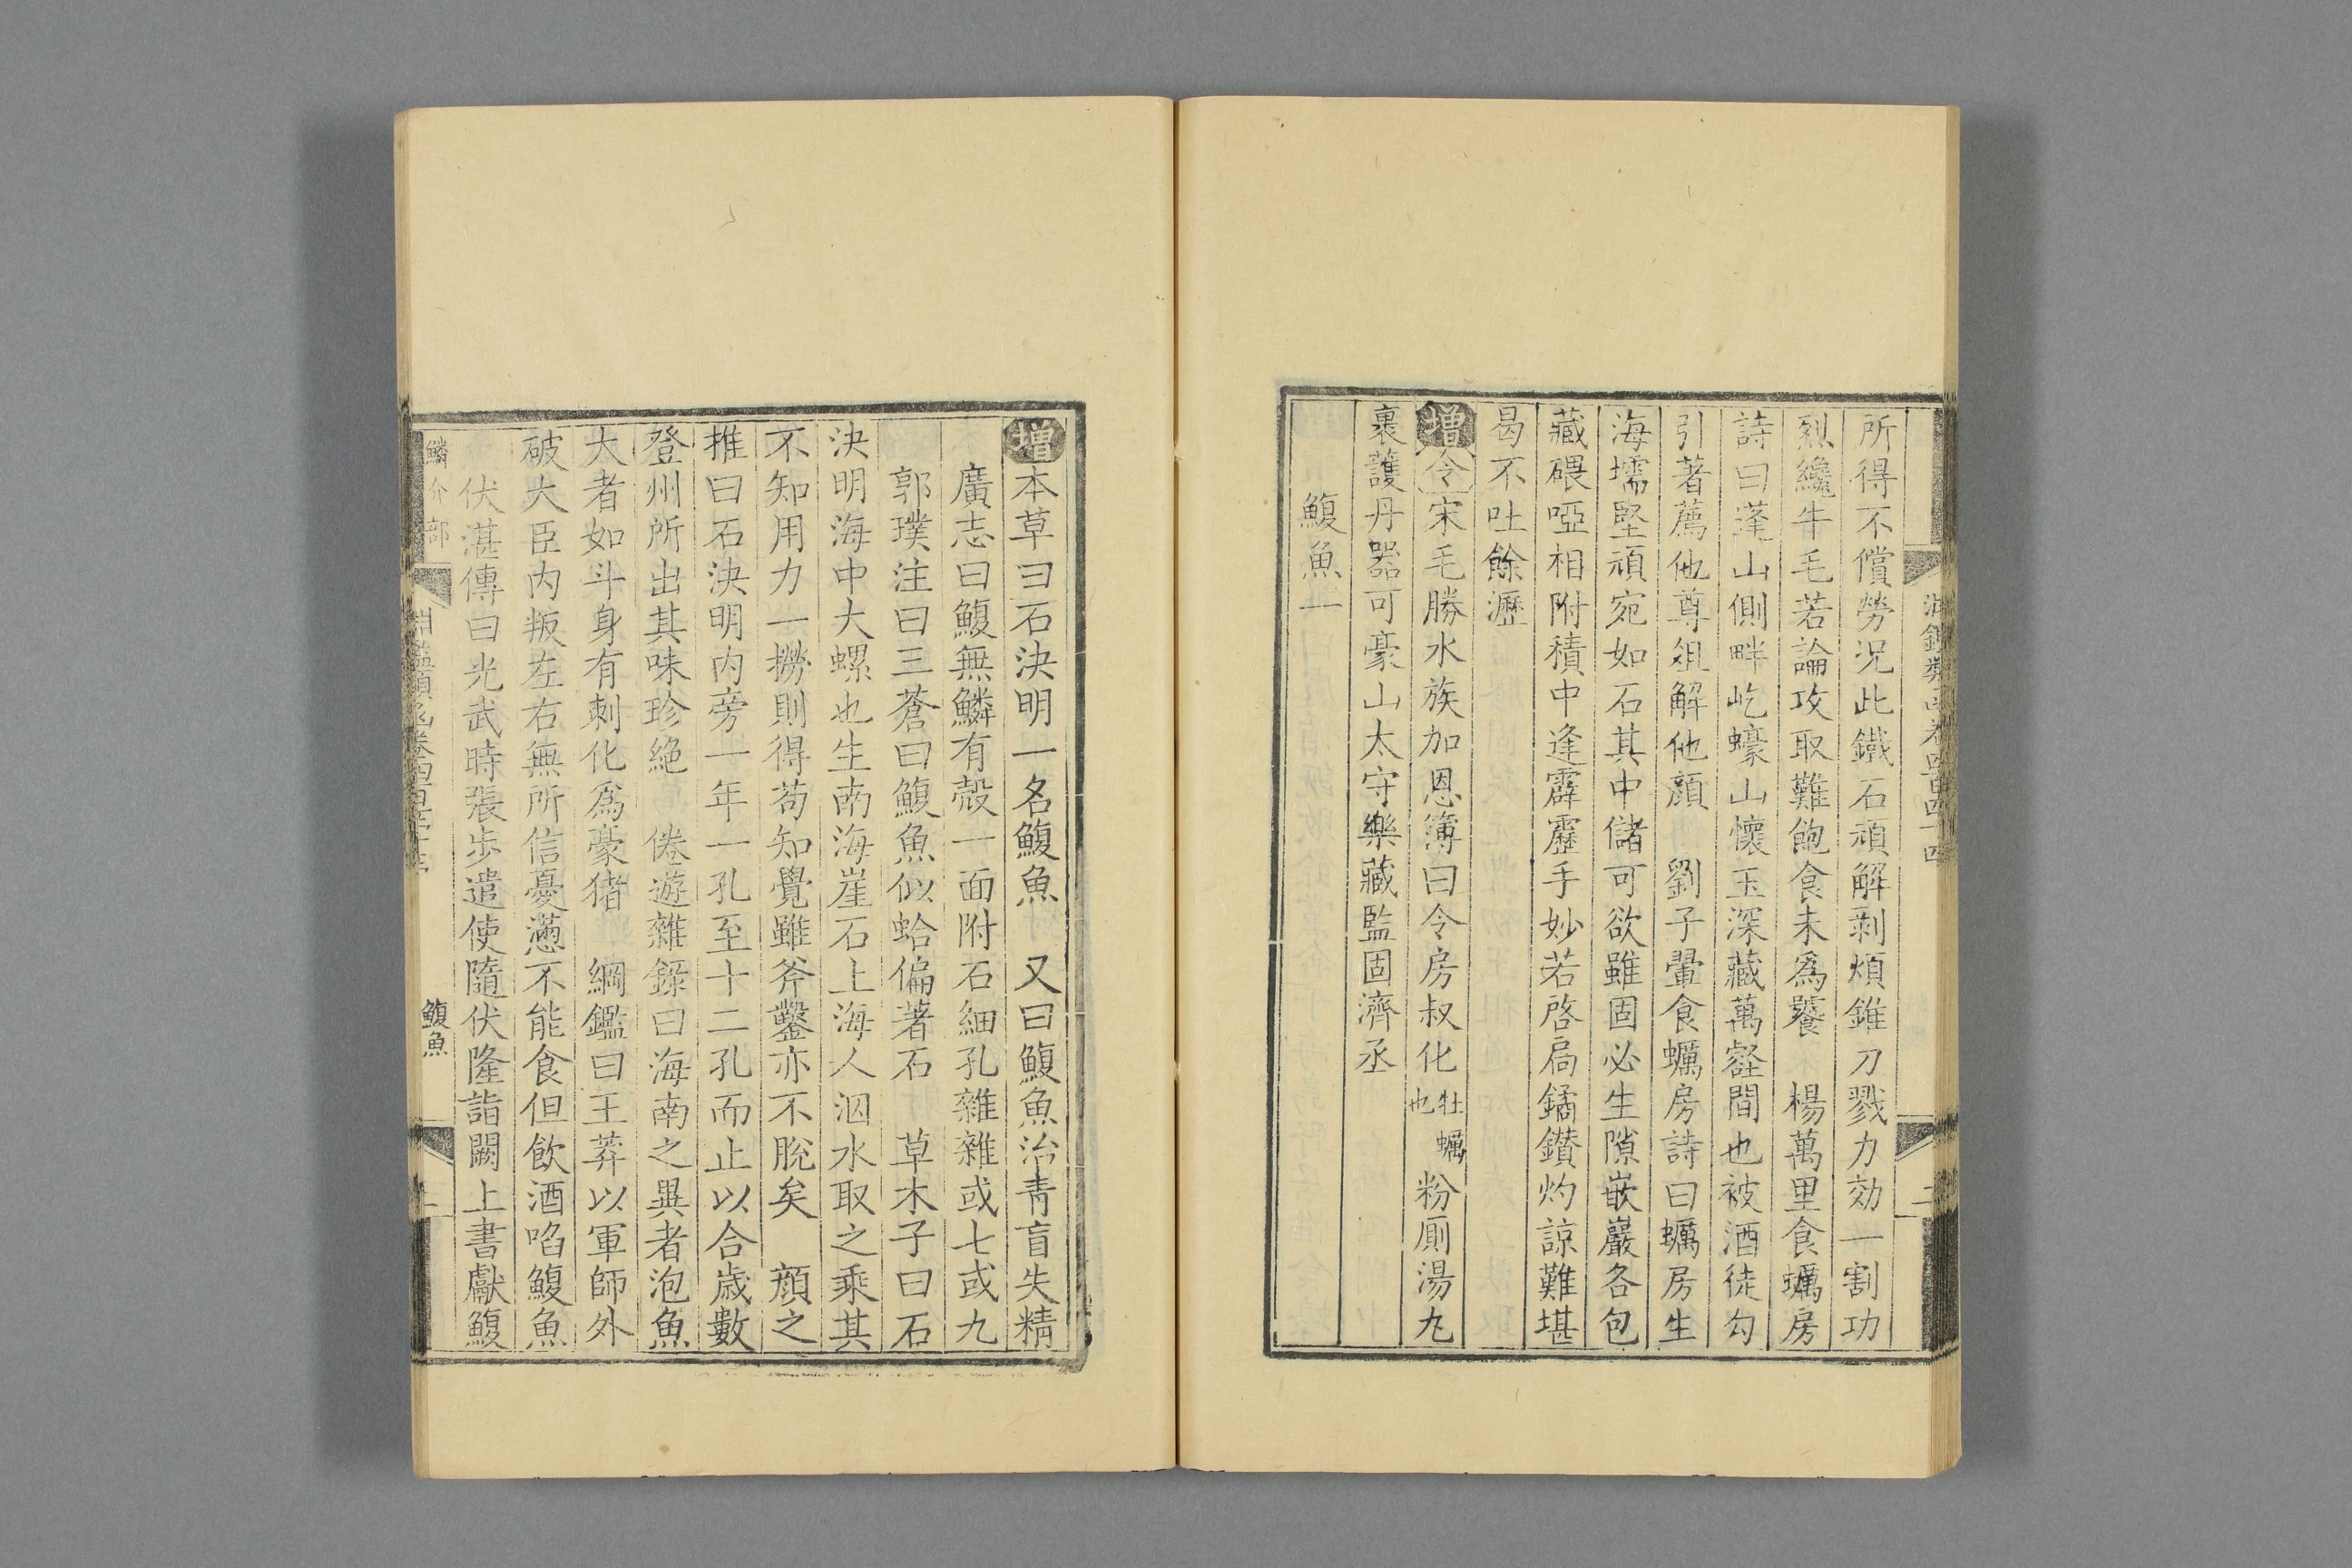 所得不償勞況此鐵石頑解剥煩錐刀戮力効一割功
烈纔牛毛若論攻取難飽食未爲饕　楊萬里食蠣房
詩曰蓬山側畔屹蠔山懷玉深藏萬壑間也被酒徒勾
引著薦他尊俎解他顔　劉子翬食蠣房詩曰蠣房生
海壖堅頑宛如石其中儲可欲雖固必生隙嵌巖各包
藏碨啞相附積中逢霹靂手妙若啓扃鐍鑽灼諒難堪
曷不吐餘瀝
增令宋毛勝水族加恩簿曰令房叔化牡蠣也粉厠湯九
裹護丹器可豪山太守樂藏監固濟丞
鰒魚一
增本草曰石決明一名鰒魚　又曰鰒魚治青盲失精
廣志曰鰒無鱗有殼一面附石細孔雜雜或七或九
郭璞注曰三蒼曰鰒魚似蛤偏著石　草木子曰石
決明海中大螺也生南海崖石上海人泅水取之乘其
不知用力一撈則得苟知覺雖斧鑿亦不脫矣　顔之
推曰石決明内旁一年一孔至十二孔而止以合歲數
登州所出其味珍絶　倦遊雜錄曰海南之異者泡魚
大者如斗身有刺化爲豪猪　綱鑑曰王莽以軍師外
破大臣内叛左右無所信憂懣不能食但飲酒啗鰒魚
伏湛傳曰光武時張步遣使隨伏隆詣闕上書獻鰒
鱗介部
鰒魚